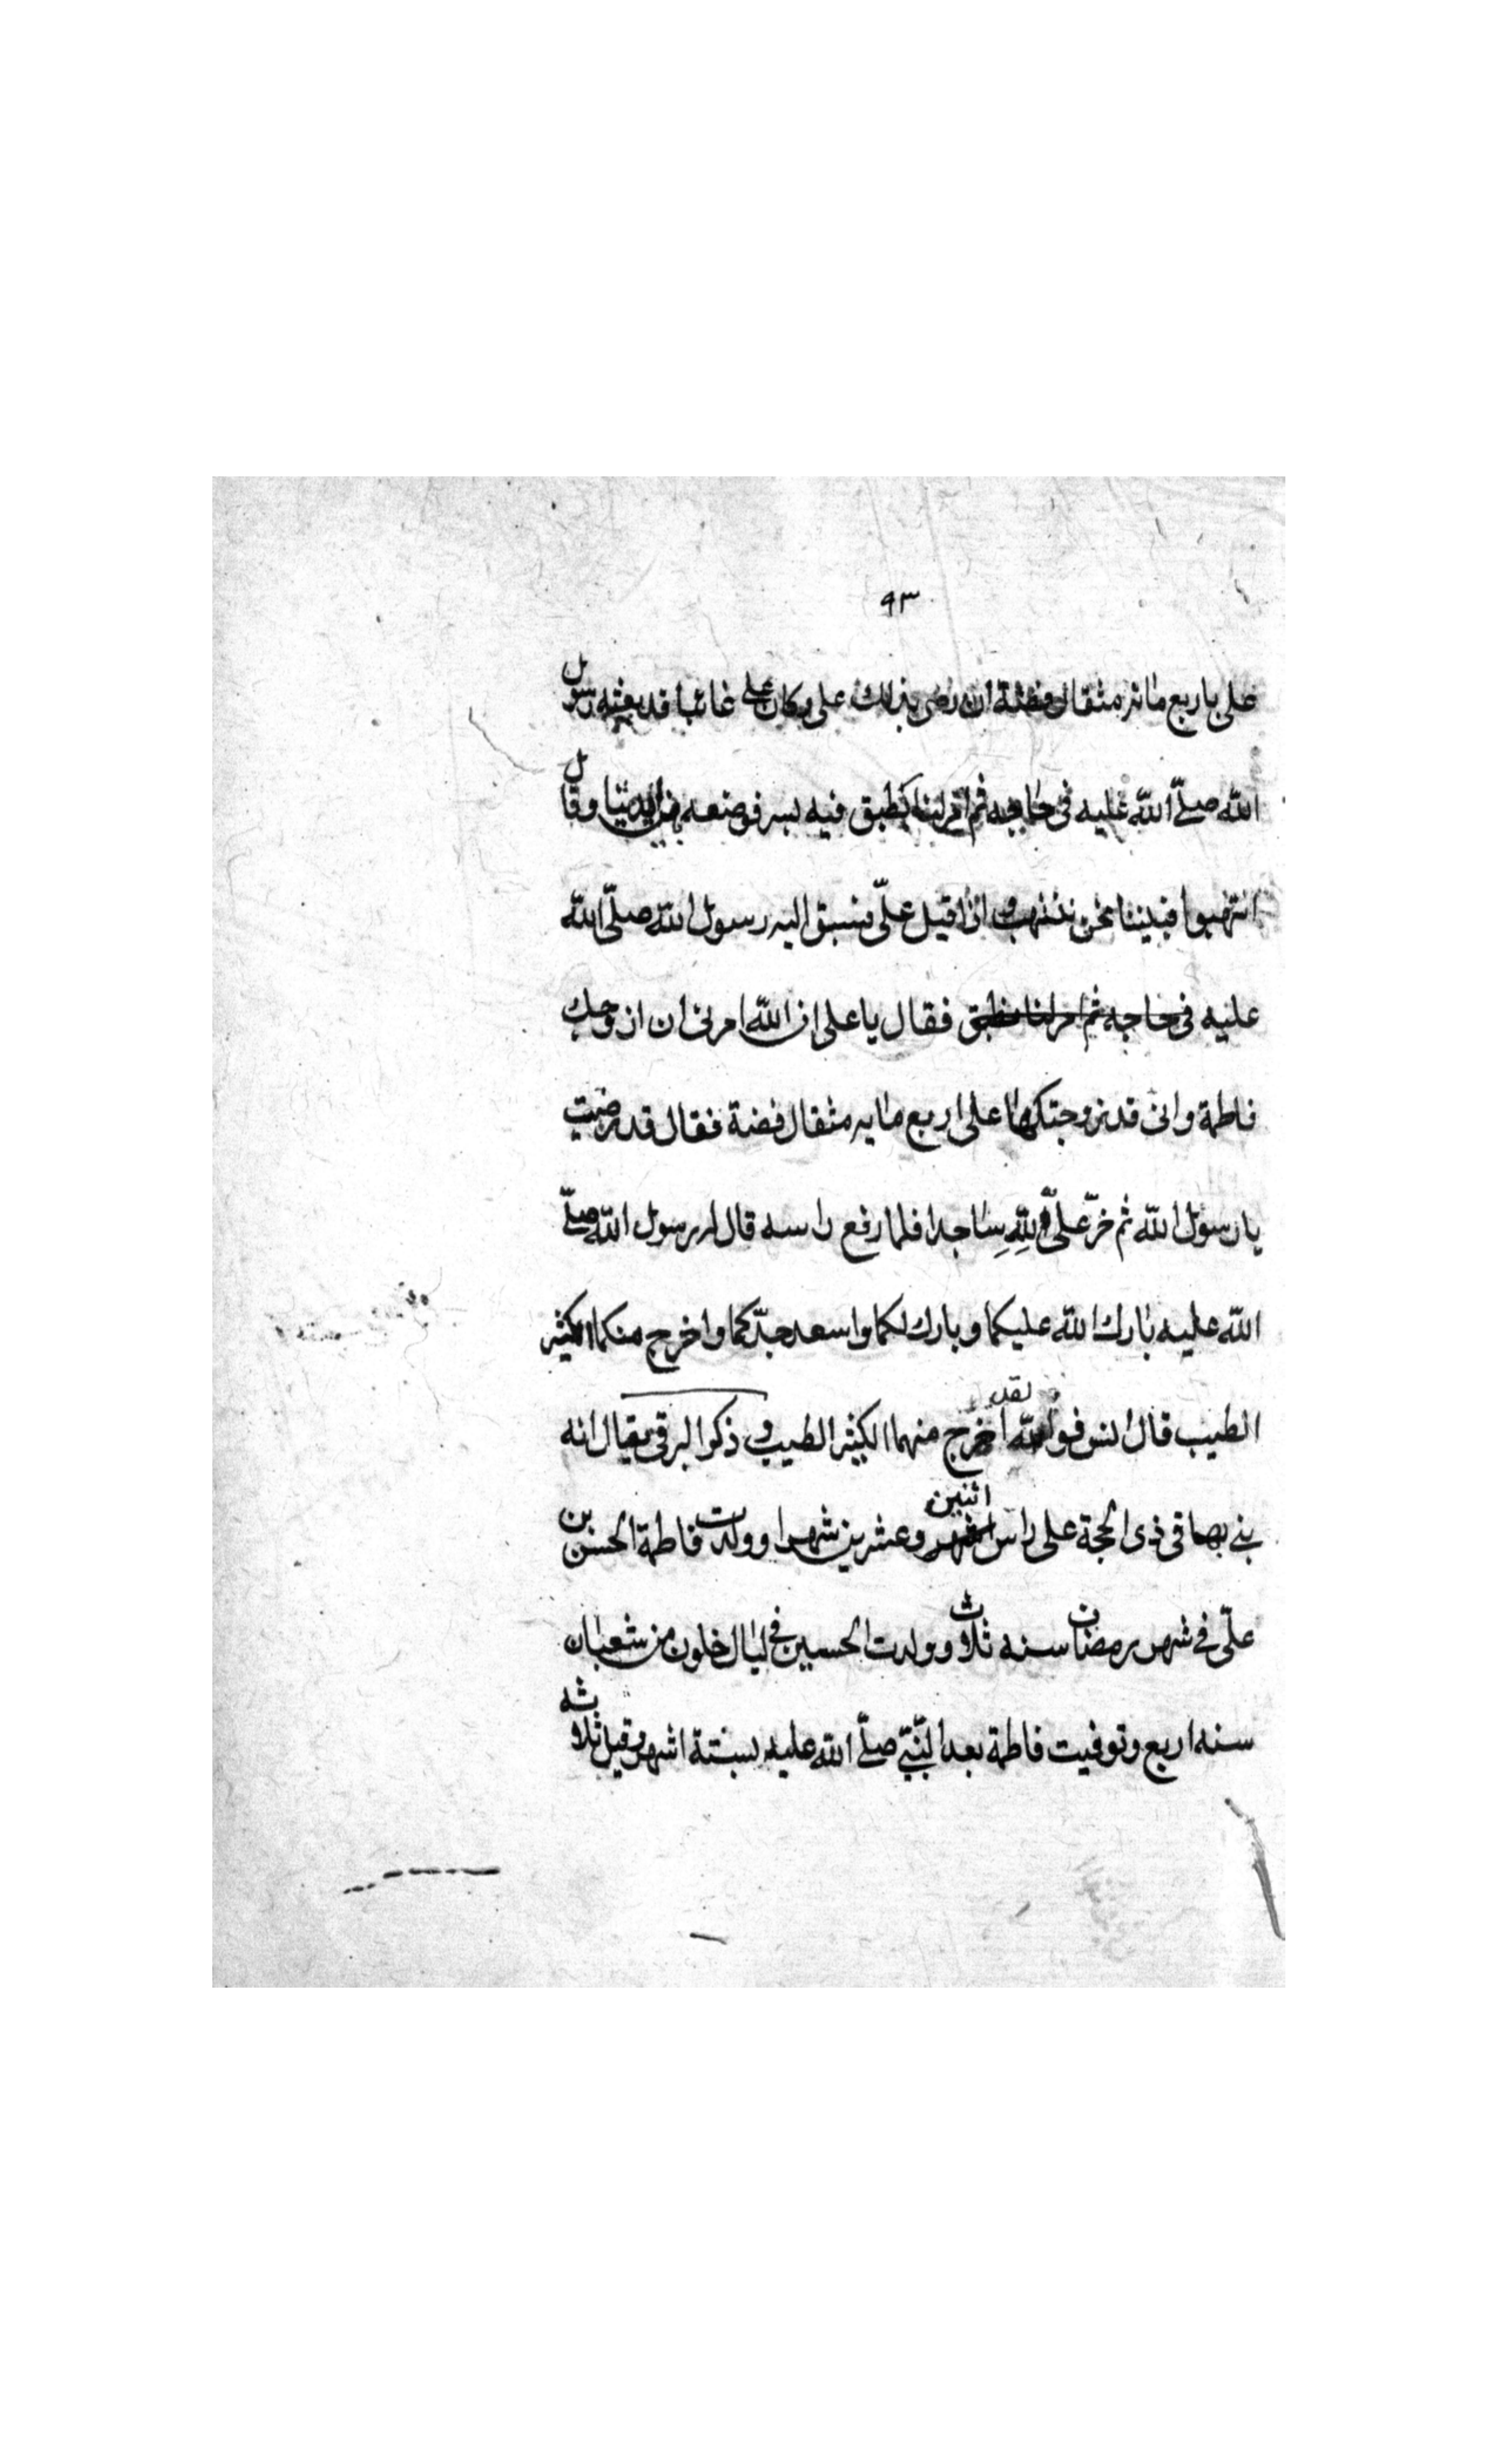 ٩٣
على باربع مائة مثقال فضة ان رضى بذلك على وكان على غائبا قد بعثه رسول
الله صلّى الله عليه فى حاجه ثم امر لنا بطبق فيه بسر فوضعه بين ايدينا وقال
انتهبوا فبيننا نحن ننتهب اذا قبل علىّ فسبق اليه رسول الله صلّى الله
عليه فى حاجه ثم امر لنا بطبق فقال يا على ان الله امرنى ان ازوجك
فاطمة وانى قد زوجتكها على اربع مايه مثقال فضة فقال قد رضيت
يا رسول الله ثم خرّ علىّ لله ساجدا فلما رفع راسه قال له رسول الله صلّى
الله عليه بارك الله عليكما وبارك لكما واسعد جدّكما واخرج منكما الكثير
الطيب قال انس فوالله لقد اخرج منهما الكثير الطيب وذكر البرقى يقال انه
بنى بها فى ذى الحجة على راس اثنين وعشرين شهرا وولدت فاطمة الحسن بن
علّى فى شهر رمضان سنه ثلاث وولدت الحسين فى ليال خلون من شعبان
سنه اربع وتوفيت فاطمة بعد النّبىّ صلّى الله عليه بستة اشهر وقيل ثلاثه